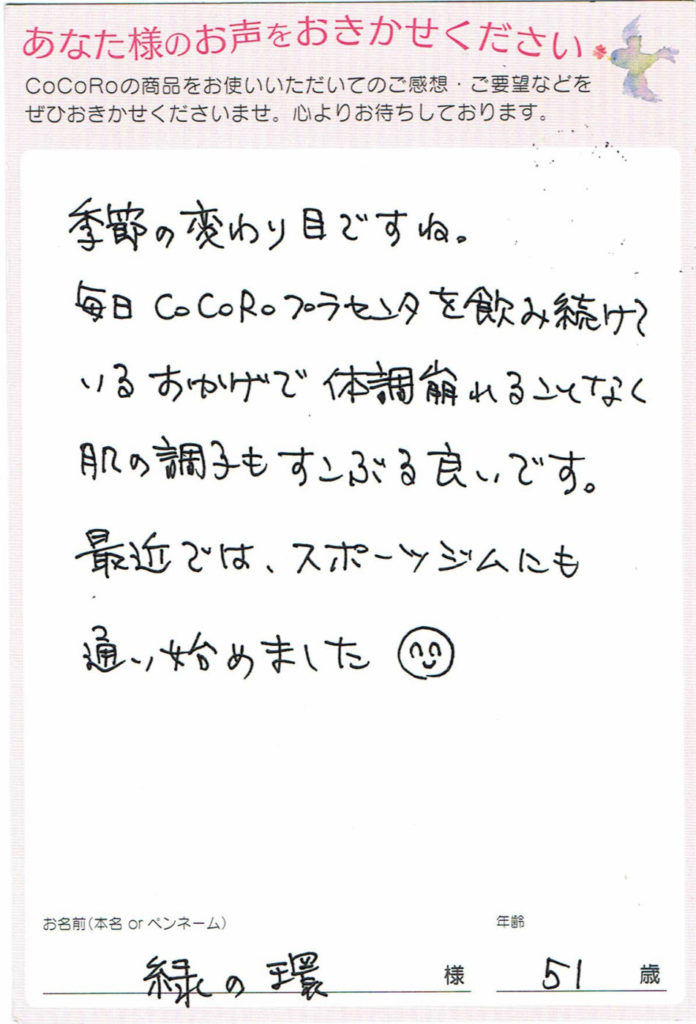 あなた様のお声をおきかせください
CoCoRoの商品をお使いいただいてのご感想・ご要望などを
ぜひおきかせくださいませ。心よりお待ちしております。
季節の変わり目ですね。
毎日CoCoRoプラセンタを飲み続けて
いるおかげで体調崩れることなく
肌の調子もすこぶる良いです。
最近では、スポーツジムにも
通い始めました
お名前(本名 or ペンネーム)
年齢
緑の環 様
51 歳